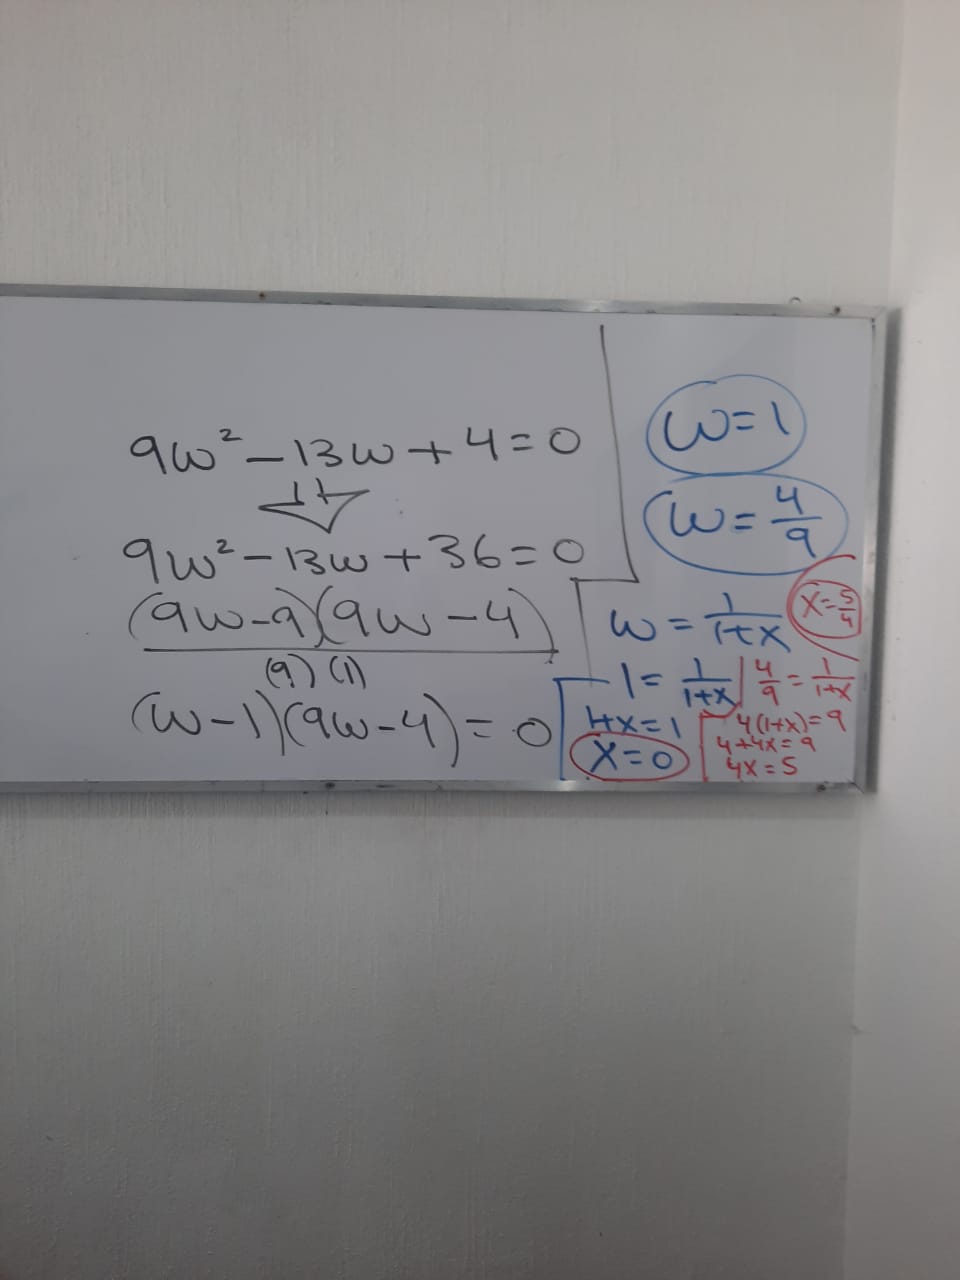 9w² - 13w + 4 = 0
9w² - 13w + 36 = 0
(9w - 9)(9w - 4)
(9) (1)
(w - 1)(9w - 4) = 0
w = 1
w = 4/9
w = 1/(1+x)
1 = 1/(1+x)
1+x = 1
x = 0
4/9 = 1/(1+x)
4(1+x) = 9
4+4x = 9
4x = 5
x = 5/4